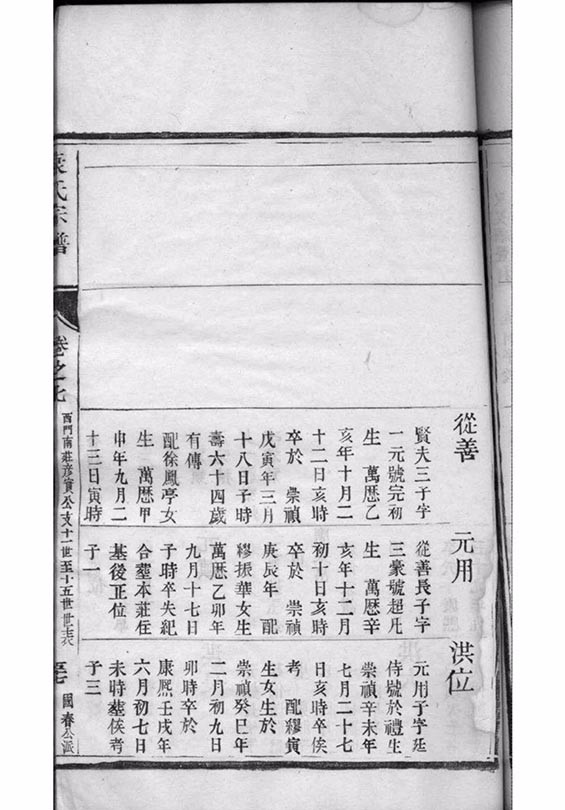 從善
賢夫三子字
一元號完初
生　萬厯乙
亥年十月二
十二日亥時
卒於　崇禎
戊寅年三月
十八日子時
壽六十四歲
有傳
配徐鳳亭女
生　萬厯甲
申年九月二
十三日寅時
元用
從善長子字
三業號超凡
生　萬厯辛
亥年十二月
初十日亥時
卒於　崇禎
庚辰年　配
繆振華女生
萬厯乙卯年
九月十七日
子時卒失紀
合塟本莊在
基後正位
子一
洪位
元用子字廷
侍號於禮生
崇禎辛未年
七月二十七
日亥時卒俟
考　配繆寅
生女生於
崇禎癸巳年
二月初九日
卯時卒於
康熈壬戌年
六月初七日
未時塟俟考
子三
袁氏宗譜
卷之七
西門南莊彥實公支十一世至十五世世表
國春公派